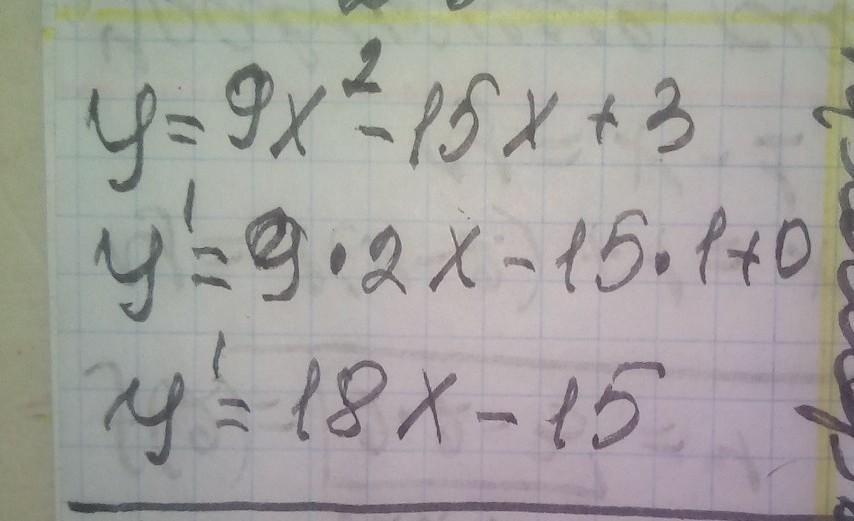 y = 9x² - 15x + 3
y' = 9 · 2x - 15 · 1 + 0
y' = 18x - 15